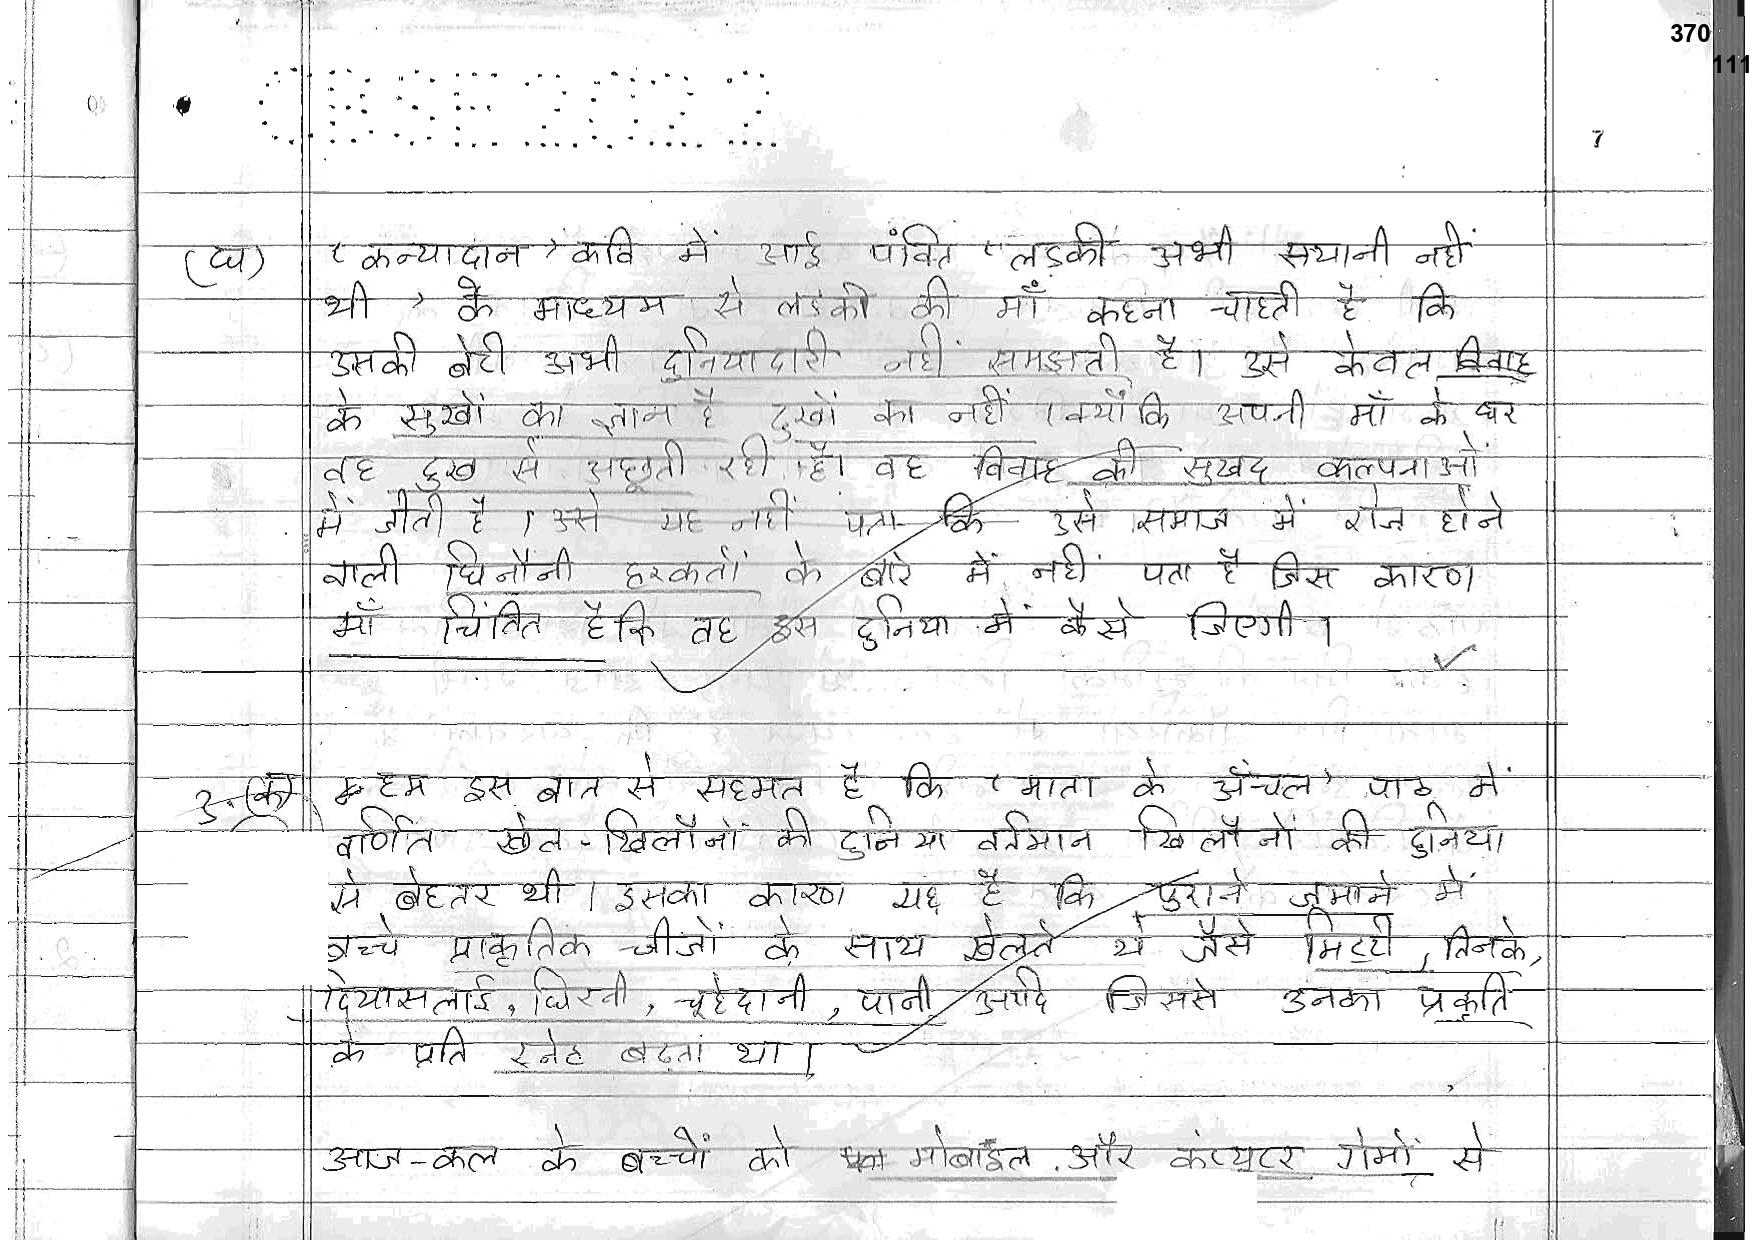 370
111
CBSE2022
7
(घ) 'कन्यादान' कवि में आई पंक्ति 'लड़की अभी सयानी नहीं
थी' के माध्यम से लड़की की माँ कहना चाहती है कि
उसकी बेटी अभी दुनियादारी नहीं समझती है। उसे केवल विवाह
के सुखों का ज्ञान है दुखों का नहीं। क्योंकि अपनी माँ के घर
वह दुख से अछूती रही है। वह विवाह की सुखद कल्पनाओं
में जीती है। उसे यह नहीं पता कि उसे समाज में रोज होने
वाली घिनौनी हरकतों के बारे में नहीं पता है जिस कारण
माँ चिंतित है कि वह इस दुनिया में कैसे जिएगी।
3.(क) हम इस बात से सहमत है कि 'माता के अँचल' पाठ में
वर्णित खेल-खिलौनों की दुनिया वर्तमान खिलौनों की दुनिया
से बेहतर थी। इसका कारण यह है कि पुराने जमाने में
बच्चे प्राकृतिक चीजों के साथ खेलते थे जैसे मिट्टी, तिनके,
दियासलाई, घिरनी, चूहेदानी, पानी आदि जिससे उनका प्रकृति
के प्रति स्नेह बढ़ता था।
आज-कल के बच्चों को मोबाइल और कंप्यूटर गेमों से